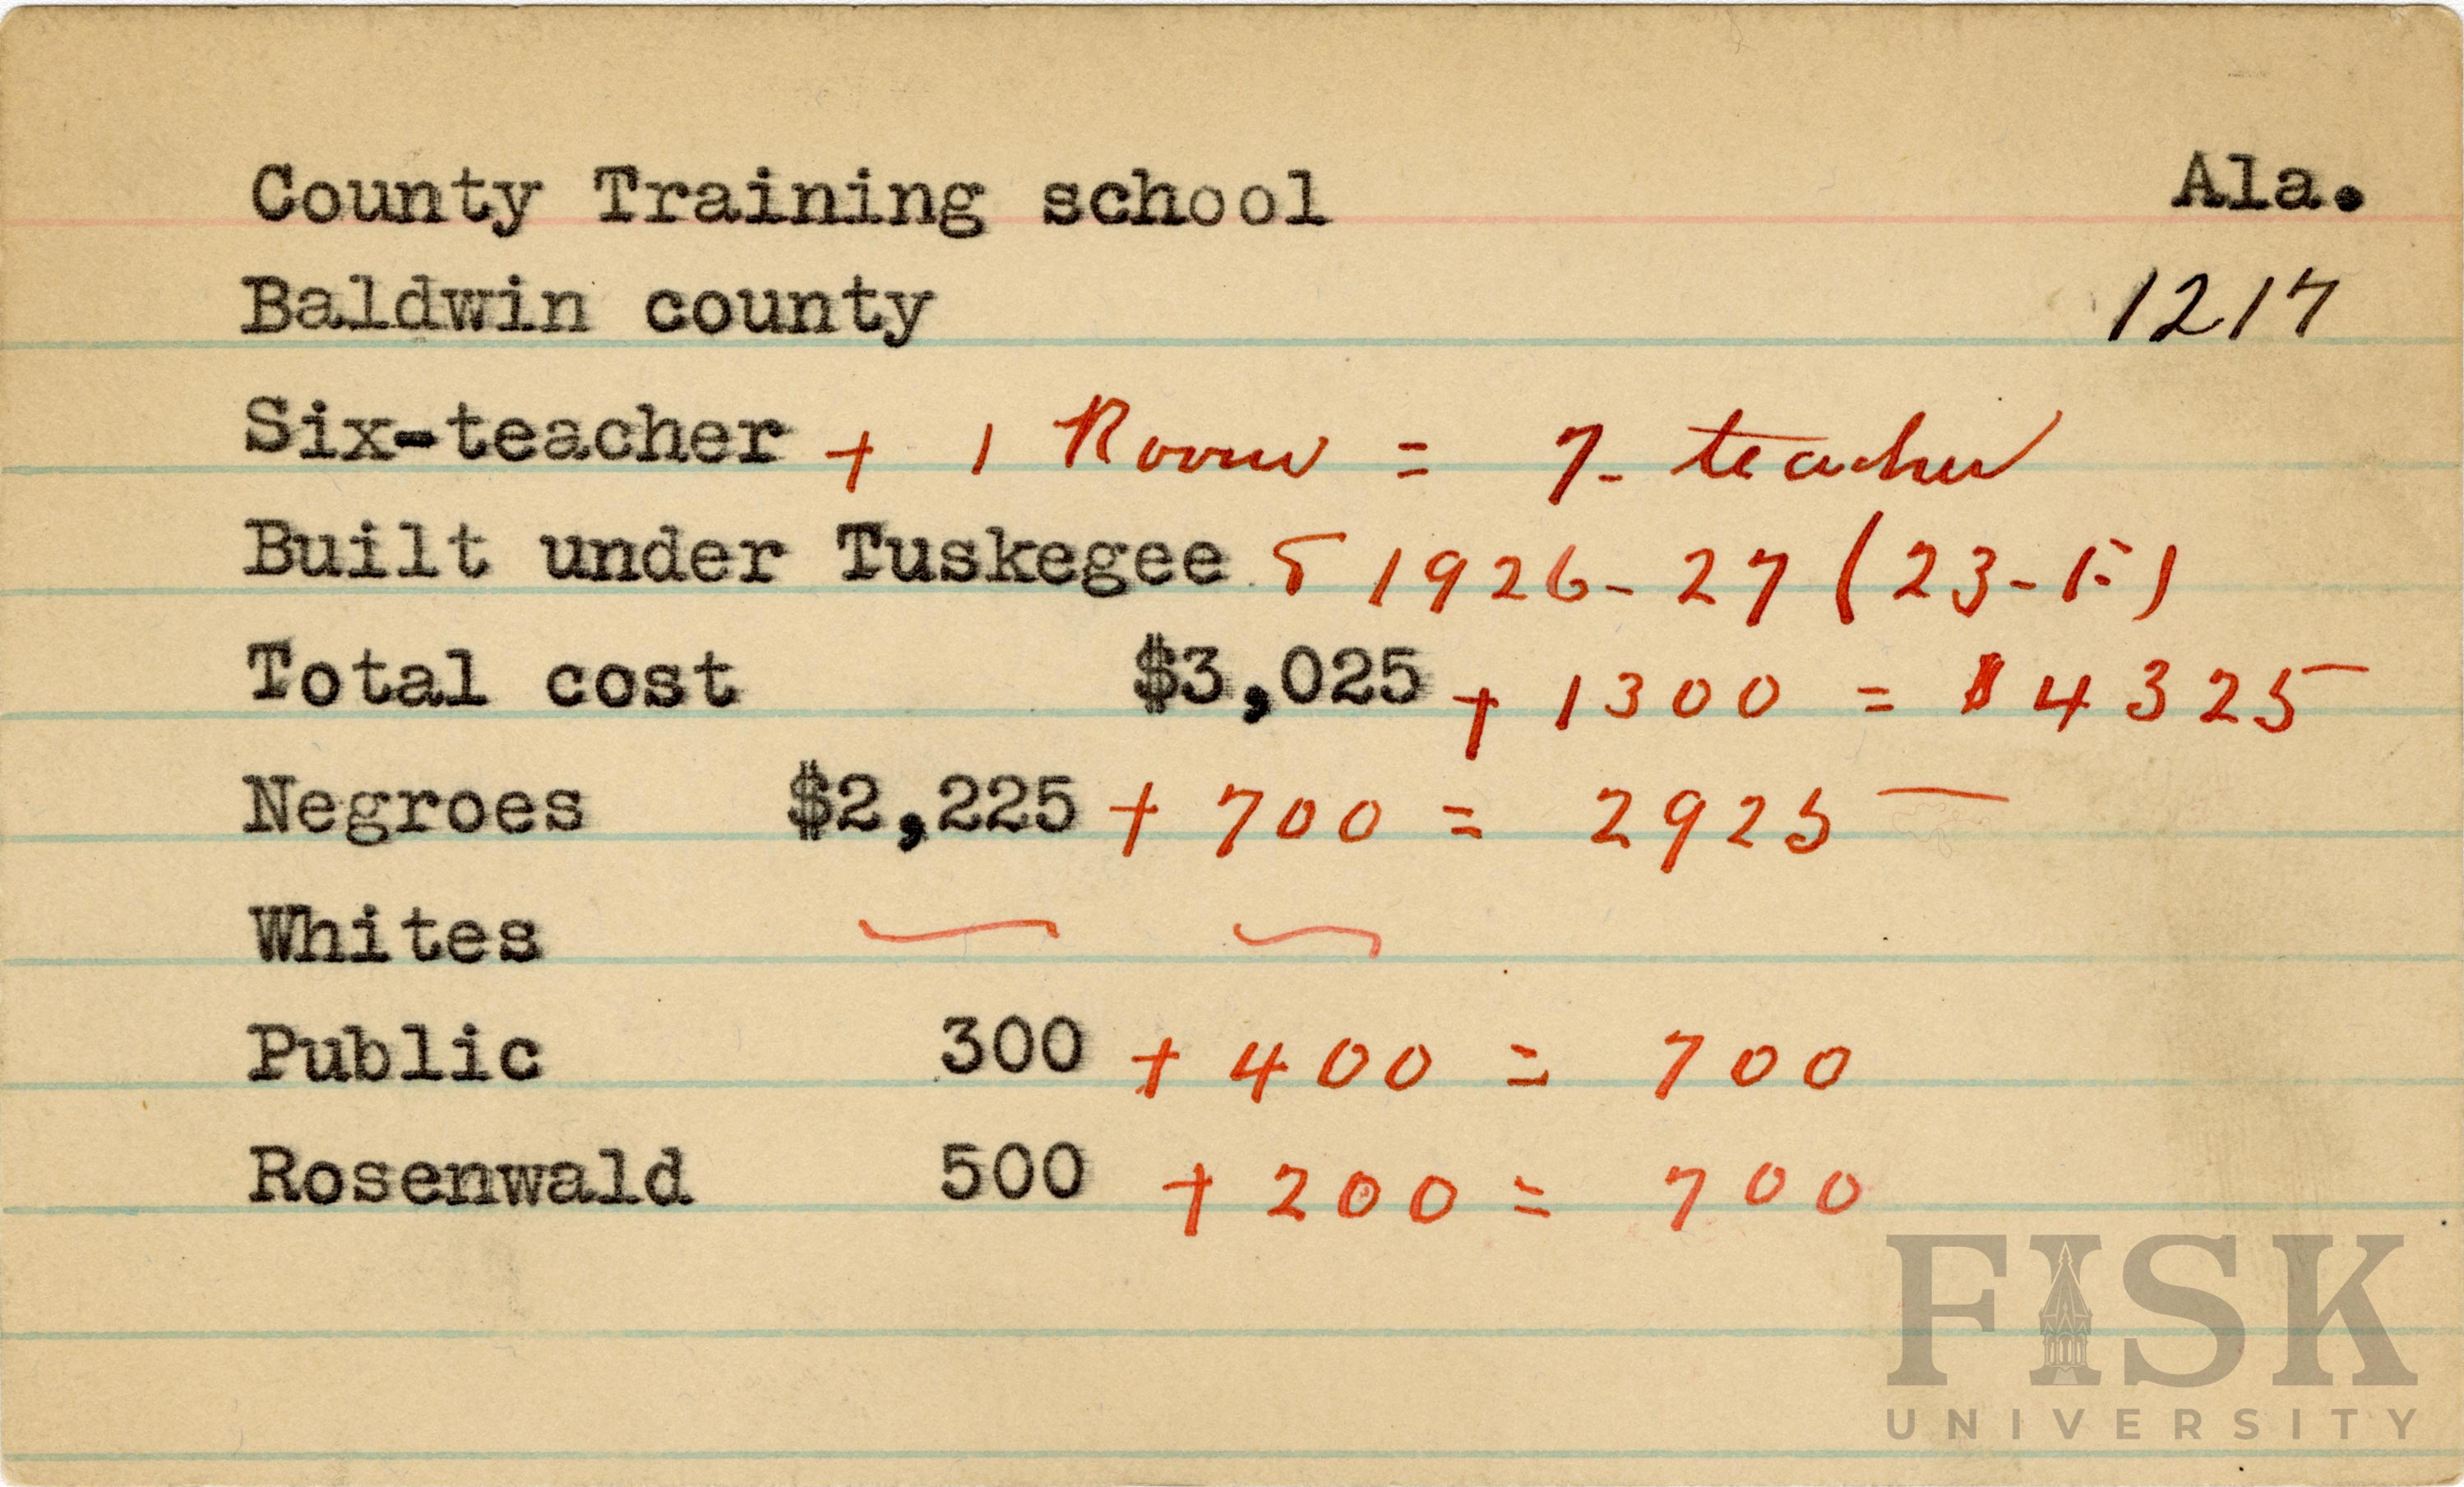 County Training school Ala.
Baldwin county 1217
Six-teacher + 1 Room = 7- teacher
Built under Tuskegee & 1926-27 (23-E)
Total cost $3,025 + 1300 = $4325
Negroes $2,225 + 700 = 2925
Whites — —
Public 300 + 400 = 700
Rosenwald 500 + 200 = 700
FISK
UNIVERSITY